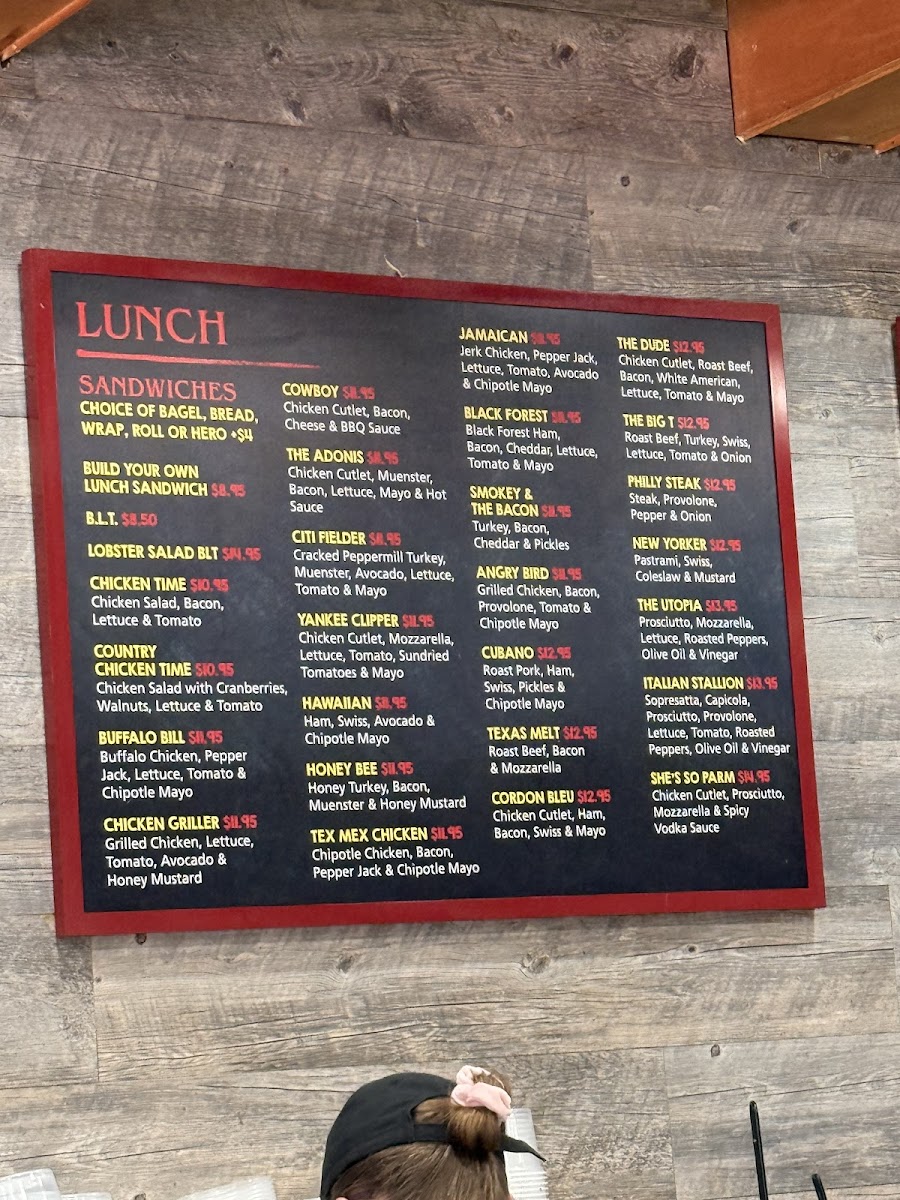 LUNCH
SANDWICHES
CHOICE OF BAGEL, BREAD,
WRAP, ROLL OR HERO +$4
BUILD YOUR OWN
LUNCH SANDWICH $8.95
B.L.T. $8.50
LOBSTER SALAD BLT $14.95
CHICKEN TIME $10.95
Chicken Salad, Bacon,
Lettuce & Tomato
COUNTRY
CHICKEN TIME $10.95
Chicken Salad with Cranberries,
Walnuts, Lettuce & Tomato
BUFFALO BILL $11.95
Buffalo Chicken, Pepper
Jack, Lettuce, Tomato &
Chipotle Mayo
CHICKEN GRILLER $11.95
Grilled Chicken, Lettuce,
Tomato, Avocado &
Honey Mustard
COWBOY $11.95
Chicken Cutlet, Bacon,
Cheese & BBQ Sauce
THE ADONIS $11.95
Chicken Cutlet, Muenster,
Bacon, Lettuce, Mayo & Hot
Sauce
CITI FIELDER $11.95
Cracked Peppermill Turkey,
Muenster, Avocado, Lettuce,
Tomato & Mayo
YANKEE CLIPPER $11.95
Chicken Cutlet, Mozzarella,
Lettuce, Tomato, Sundried
Tomatoes & Mayo
HAWAIIAN $11.95
Ham, Swiss, Avocado &
Chipotle Mayo
HONEY BEE $11.95
Honey Turkey, Bacon,
Muenster & Honey Mustard
TEX MEX CHICKEN $11.95
Chipotle Chicken, Bacon,
Pepper Jack & Chipotle Mayo
JAMAICAN $11.95
Jerk Chicken, Pepper Jack,
Lettuce, Tomato, Avocado
& Chipotle Mayo
BLACK FOREST $11.95
Black Forest Ham,
Bacon, Cheddar, Lettuce,
Tomato & Mayo
SMOKEY &
THE BACON $11.95
Turkey, Bacon,
Cheddar & Pickles
ANGRY BIRD $11.95
Grilled Chicken, Bacon,
Provolone, Tomato &
Chipotle Mayo
CUBANO $12.95
Roast Pork, Ham,
Swiss, Pickles &
Chipotle Mayo
TEXAS MELT $12.95
Roast Beef, Bacon
& Mozzarella
CORDON BLEU $12.95
Chicken Cutlet, Ham,
Bacon, Swiss & Mayo
THE DUDE $12.95
Chicken Cutlet, Roast Beef,
Bacon, White American,
Lettuce, Tomato & Mayo
THE BIG T $12.95
Roast Beef, Turkey, Swiss,
Lettuce, Tomato & Onion
PHILLY STEAK $12.95
Steak, Provolone,
Pepper & Onion
NEW YORKER $12.95
Pastrami, Swiss,
Coleslaw & Mustard
THE UTOPIA $13.95
Prosciutto, Mozzarella,
Lettuce, Roasted Peppers,
Olive Oil & Vinegar
ITALIAN STALLION $13.95
Sopresatta, Capicola,
Prosciutto, Provolone,
Lettuce, Tomato, Roasted
Peppers, Olive Oil & Vinegar
SHE'S SO PARM $14.95
Chicken Cutlet, Prosciutto,
Mozzarella & Spicy
Vodka Sauce